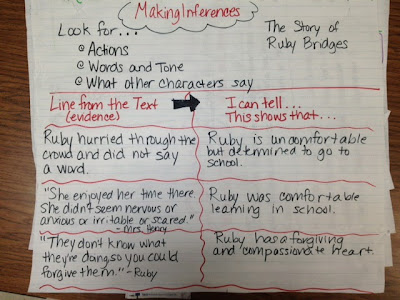 Making Inferences
Look for...
Actions
Words and Tone
What other characters say
The Story of
Ruby Bridges
Line from the Text
(evidence)
I can tell...
This shows that...
Ruby hurried through the
crowd and did not say
a word.
Ruby is uncomfortable
but determined to go to
school.
"She enjoyed her time there
She didn't seem nervous or
anxious or irritable or scared."
- Mrs. Henry
Ruby was comfortable
learning in school.
"They don't know what
they're doing, so you could
forgive them." - Ruby
Ruby has a forgiving
and compassionate heart.